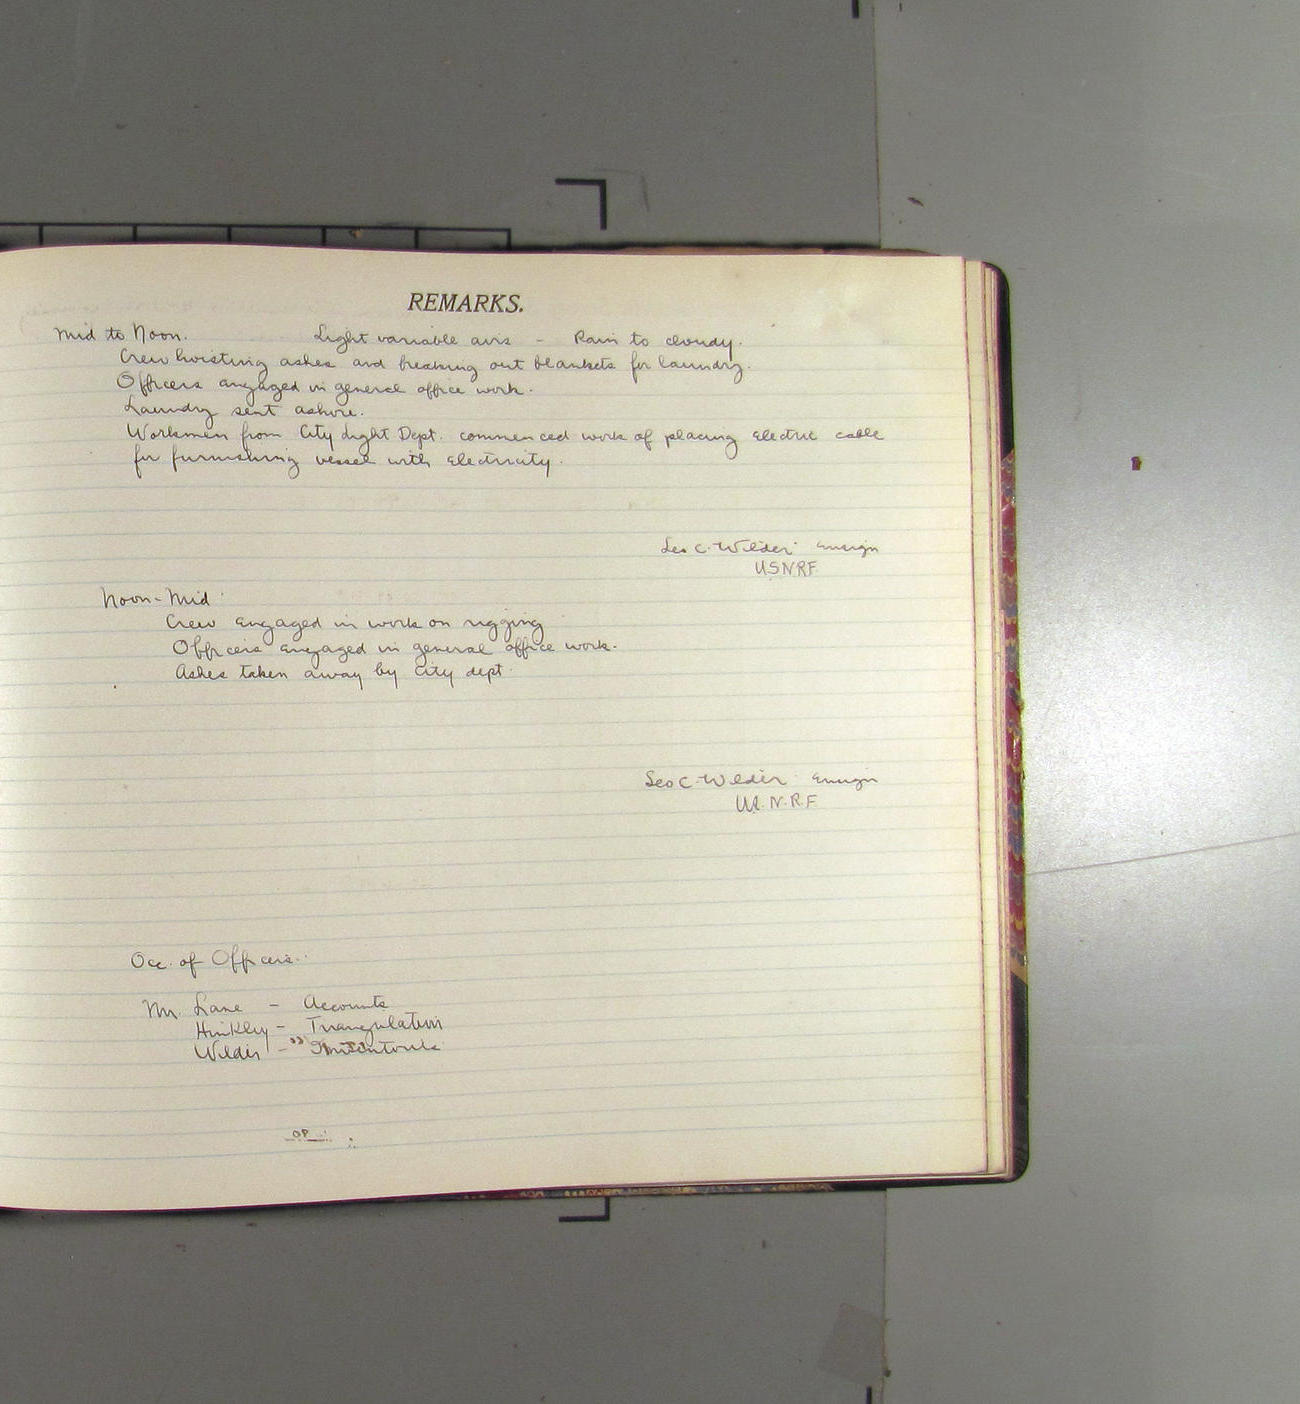 REMARKS.
Mid to Noon. Light variable airs - Rain to cloudy.
Crew hoisting ashes and breaking out blankets for laundry.
Officers engaged in general office work.
Laundry sent ashore.
Workmen from City Light Dept. commenced work of placing Electric cable
for furnishing vessel with Electricity.
Leo C. Wilder Ensign
USNRF.
Noon-Mid
Crew Engaged in work on rigging
Officers Engaged in general office work.
Ashes taken away by City dept.
Leo C. Wilder Ensign
U.S.N.R.F
Occ. of Officers.
Mr. Lane - Accounts
Hinkley - Triangulation
Wilder - "
OP